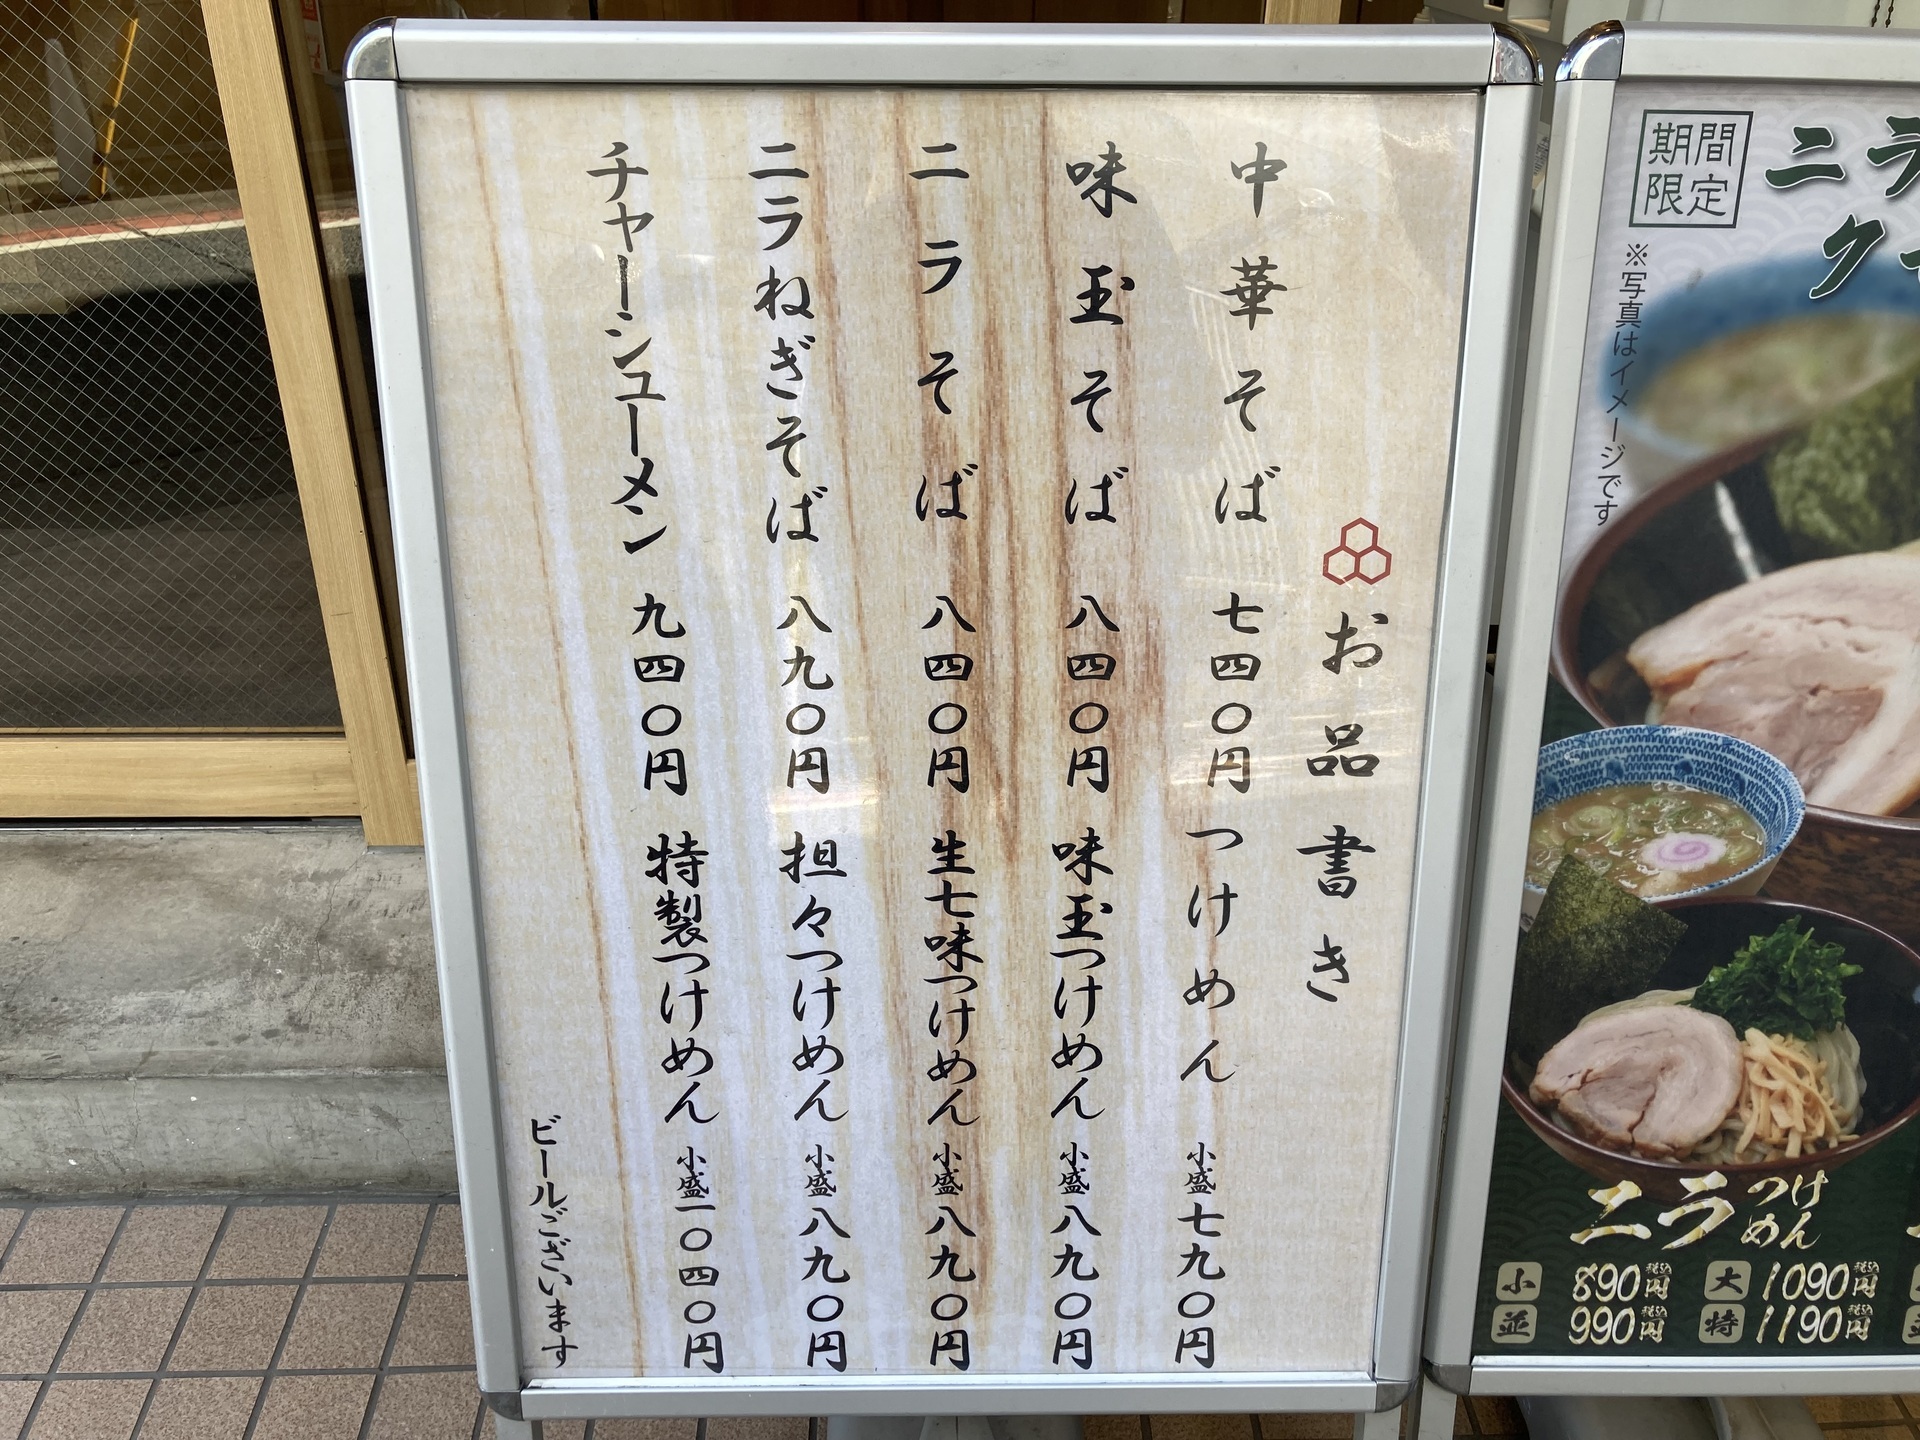 お品書き
中華そば 七四〇円
味玉そば 八四〇円
ニラそば 八四〇円
ニラねぎそば 八九〇円
チャーシューメン 九四〇円
つけめん 小盛 七九〇円
味玉つけめん 小盛 八九〇円
生七味つけめん 小盛 八九〇円
担々つけめん 小盛 八九〇円
特製つけめん 小盛 一〇四〇円
ビールございます
期間
限定
ニラ
※写真はイメージです
ニラつけめん
小 890円税込 大 1090円税込
並 990円税込 特 1190円税込